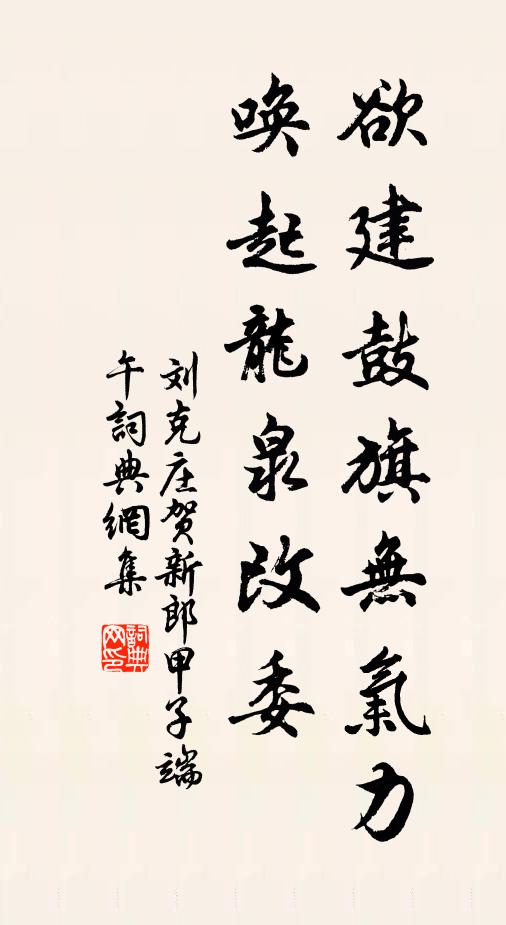 欲建鼓旗無氣力
喚起龍泉改委
刘克庄贺新郎甲子端
午詞典網集
詞典
网印